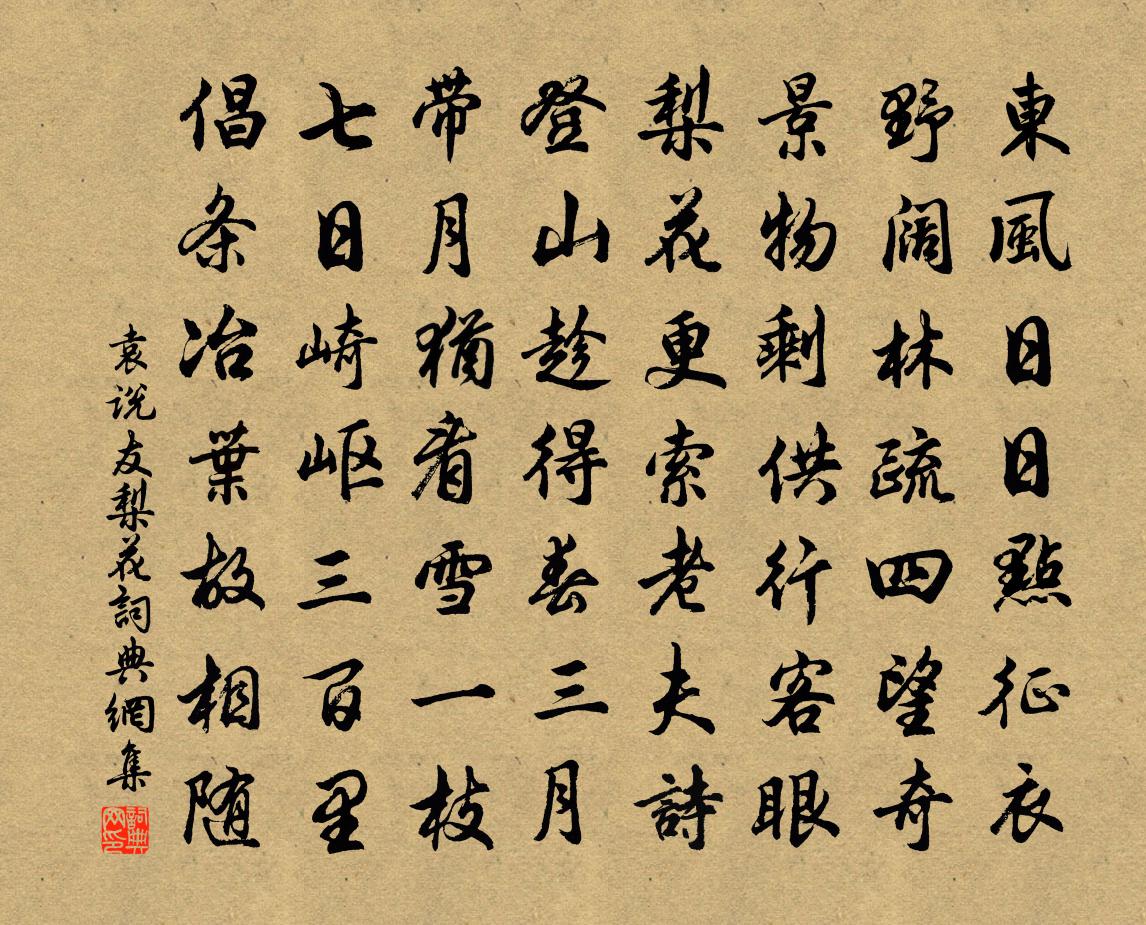 東風日日點征衣
野阔林疏四望奇
景物剩供行客眼
梨花更索老夫詩
登山趁得春三月
带月猶看雪一枝
七日崎岖三百里
倡条冶葉故相随
袁说友梨花詞典網集
詞典网印